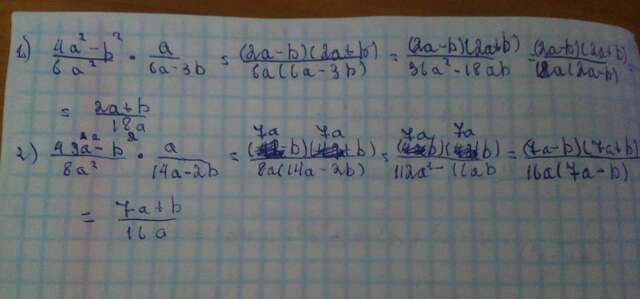 1.) (4a² - b²)/(6a²) · a/(6a - 3b) = (2a - b)(2a + b)/(6a(6a - 3b)) = (2a - b)(2a + b)/(36a² - 18ab) (2a - b)(2a + b)/(18a(2a - b))
= (2a + b)/(18a)
2.) (49a² - b²)/(8a²) · a/(14a - 2b) = (7a b)(7a b)/(8a(14a - 2b)) = (7a b)(7a b)/(112a² - 16ab) = (7a - b)(7a + b)/(16a(7a - b))
= (7a + b)/(16a)